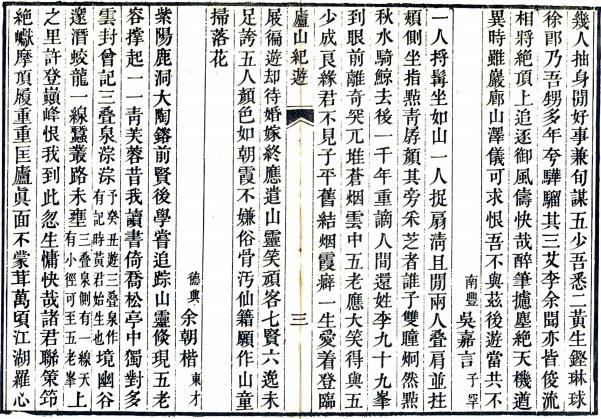 幾人抽身閒好事兼句謀五少吾悉二黃生鏗琳球
徐郎乃吾甥多年夸驊騮其三艾李余聞亦皆俊流
相將絕頂上追逐御風儔快哉醉筆攄塵絕天機遒
異時雖嚴廊山澤儀可求恨吾不與茲後遊當共不
南豐 吳嘉言 子罕
一人捋鬚坐如山一人捉扇清且閒兩人疊肩並拄
頰側坐指點青孱顏其旁釆芝者誰子雙瞳炯然點
秋水騎鯨去後一千年重謫人間還姓李九十九峯
到眼前離奇突兀堆蒼烟雲中五老應大笑得與五
少成良緣君不見子平舊結烟霞癖一生愛着登臨
廬山紀遊 三
展徧遊却待婚嫁終應遣山靈笑頑客七賢六逸未
足誇五人顏色如朝霞不嫌俗骨汚仙籍願作山童
掃落花
德興 余朝楷 東才
紫陽鹿洞大陶鎔前賢後學嘗追踪山靈倐現五老
容撐起一一青芙蓉昔我讀書倚喬松亭中獨對多
雲封曾記三疊泉淙淙予癸丑遊三疊泉作有記時黃君始生也境幽谷
邃潛蛟龍一線蠶叢路未壅三疊泉側有一線天上有小徑可至五老峯上
之里許登巓峰恨我到此忽生慵快哉諸君聯策筇
絕巘摩頂履重重匡廬眞面不蒙茸萬頃江湖羅心